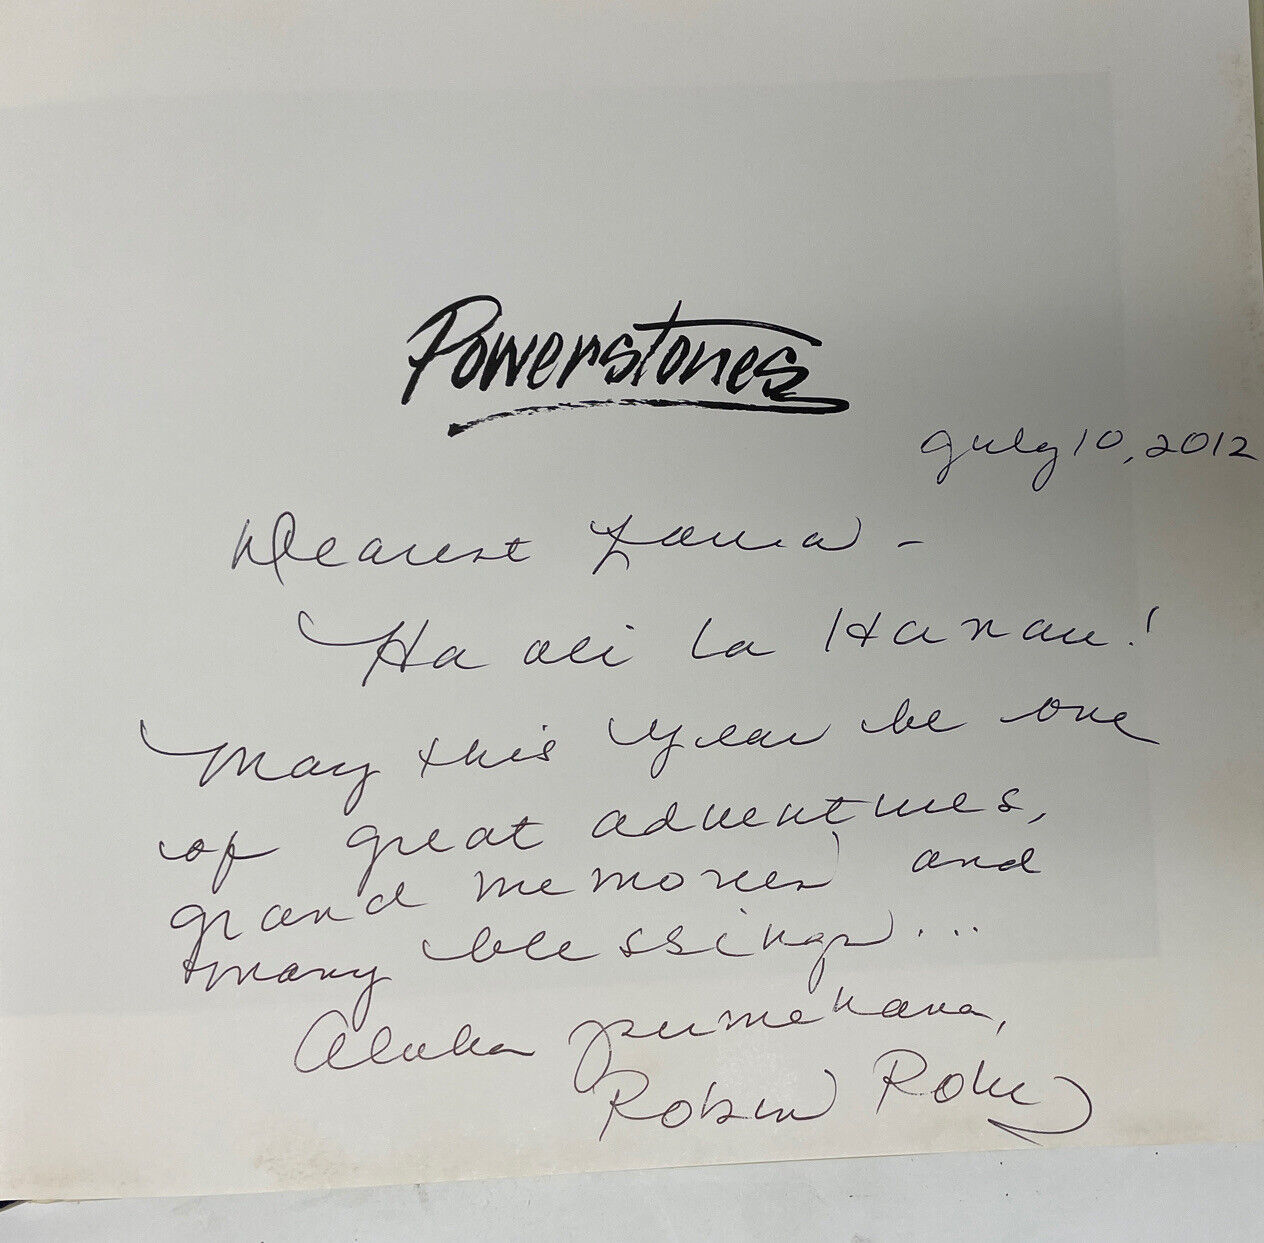 Powerstones
July 10, 2012
Dearest -
Ha oli La Hanau!
May this year be one
of great adventures,
grand memories and
many blessings...
Aloha pumehana,
Robin